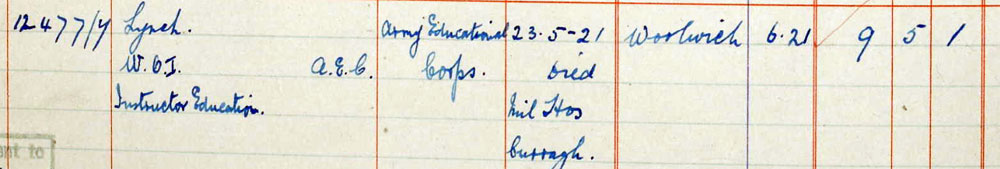 12477/4 Lynch. Army Educational 23-5-21 Woolwich 6.21 9 5 1
W.O.I. A.E.C. Corps. Died
Instructor Education. Mil Hos
Curragh.
ant to